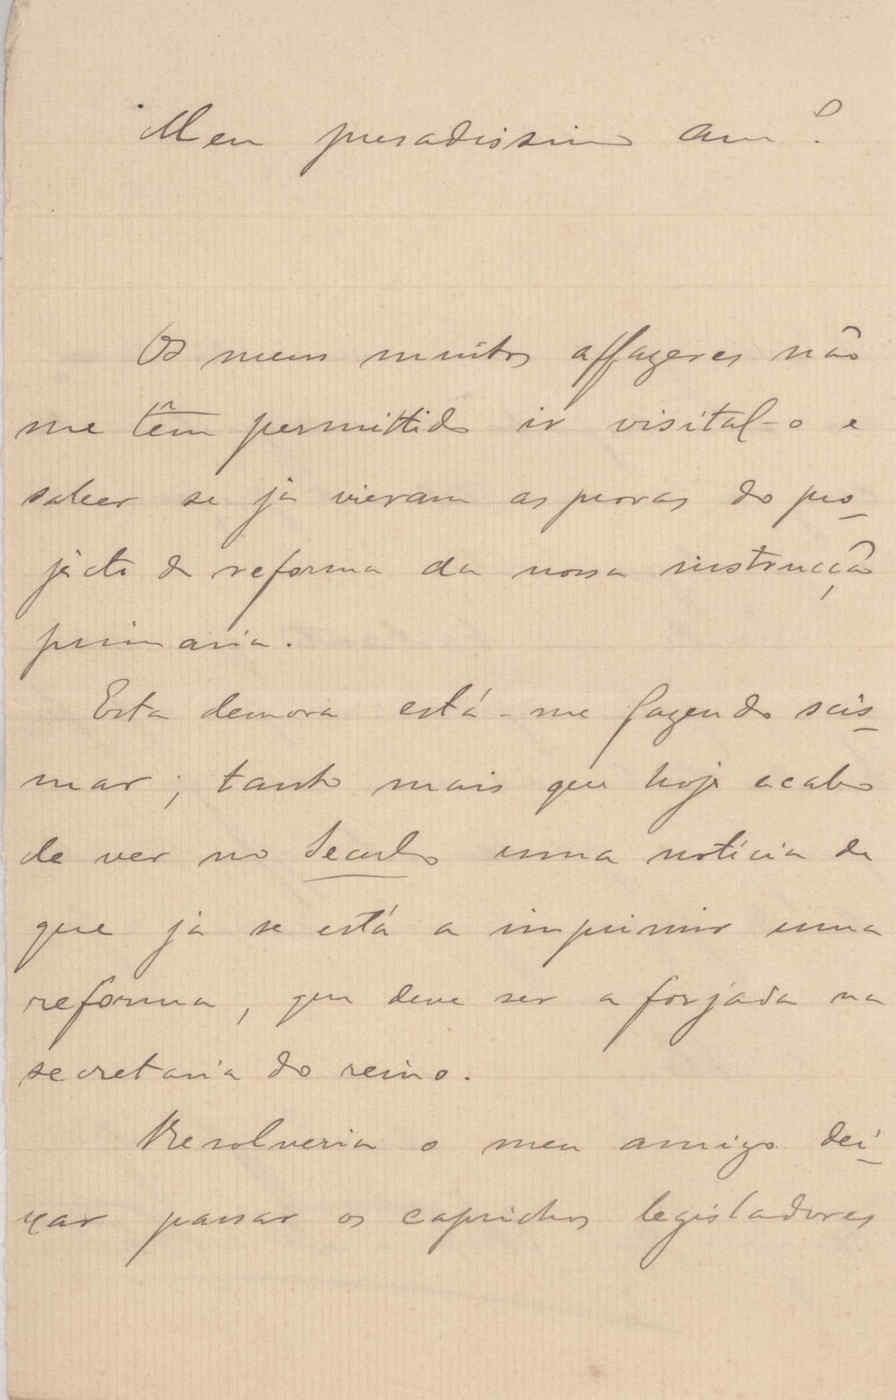 Meu presadissimo Am.º
Os meus muitos affazeres não
me têm permittido ir visital-o e
saber se já vieram as provas do pro-
jécto de reforma da nossa instrucção
primaria.
Esta demora está-me fazendo scis-
mar; tanto mais que hoje acabo
de ver no Seculo uma notícia de
que já se está a imprimir uma
reforma, que deve ser a forjada na
secretaria do reino.
Resolveria o meu amigo dei-
xar passar os caprichos legisladores